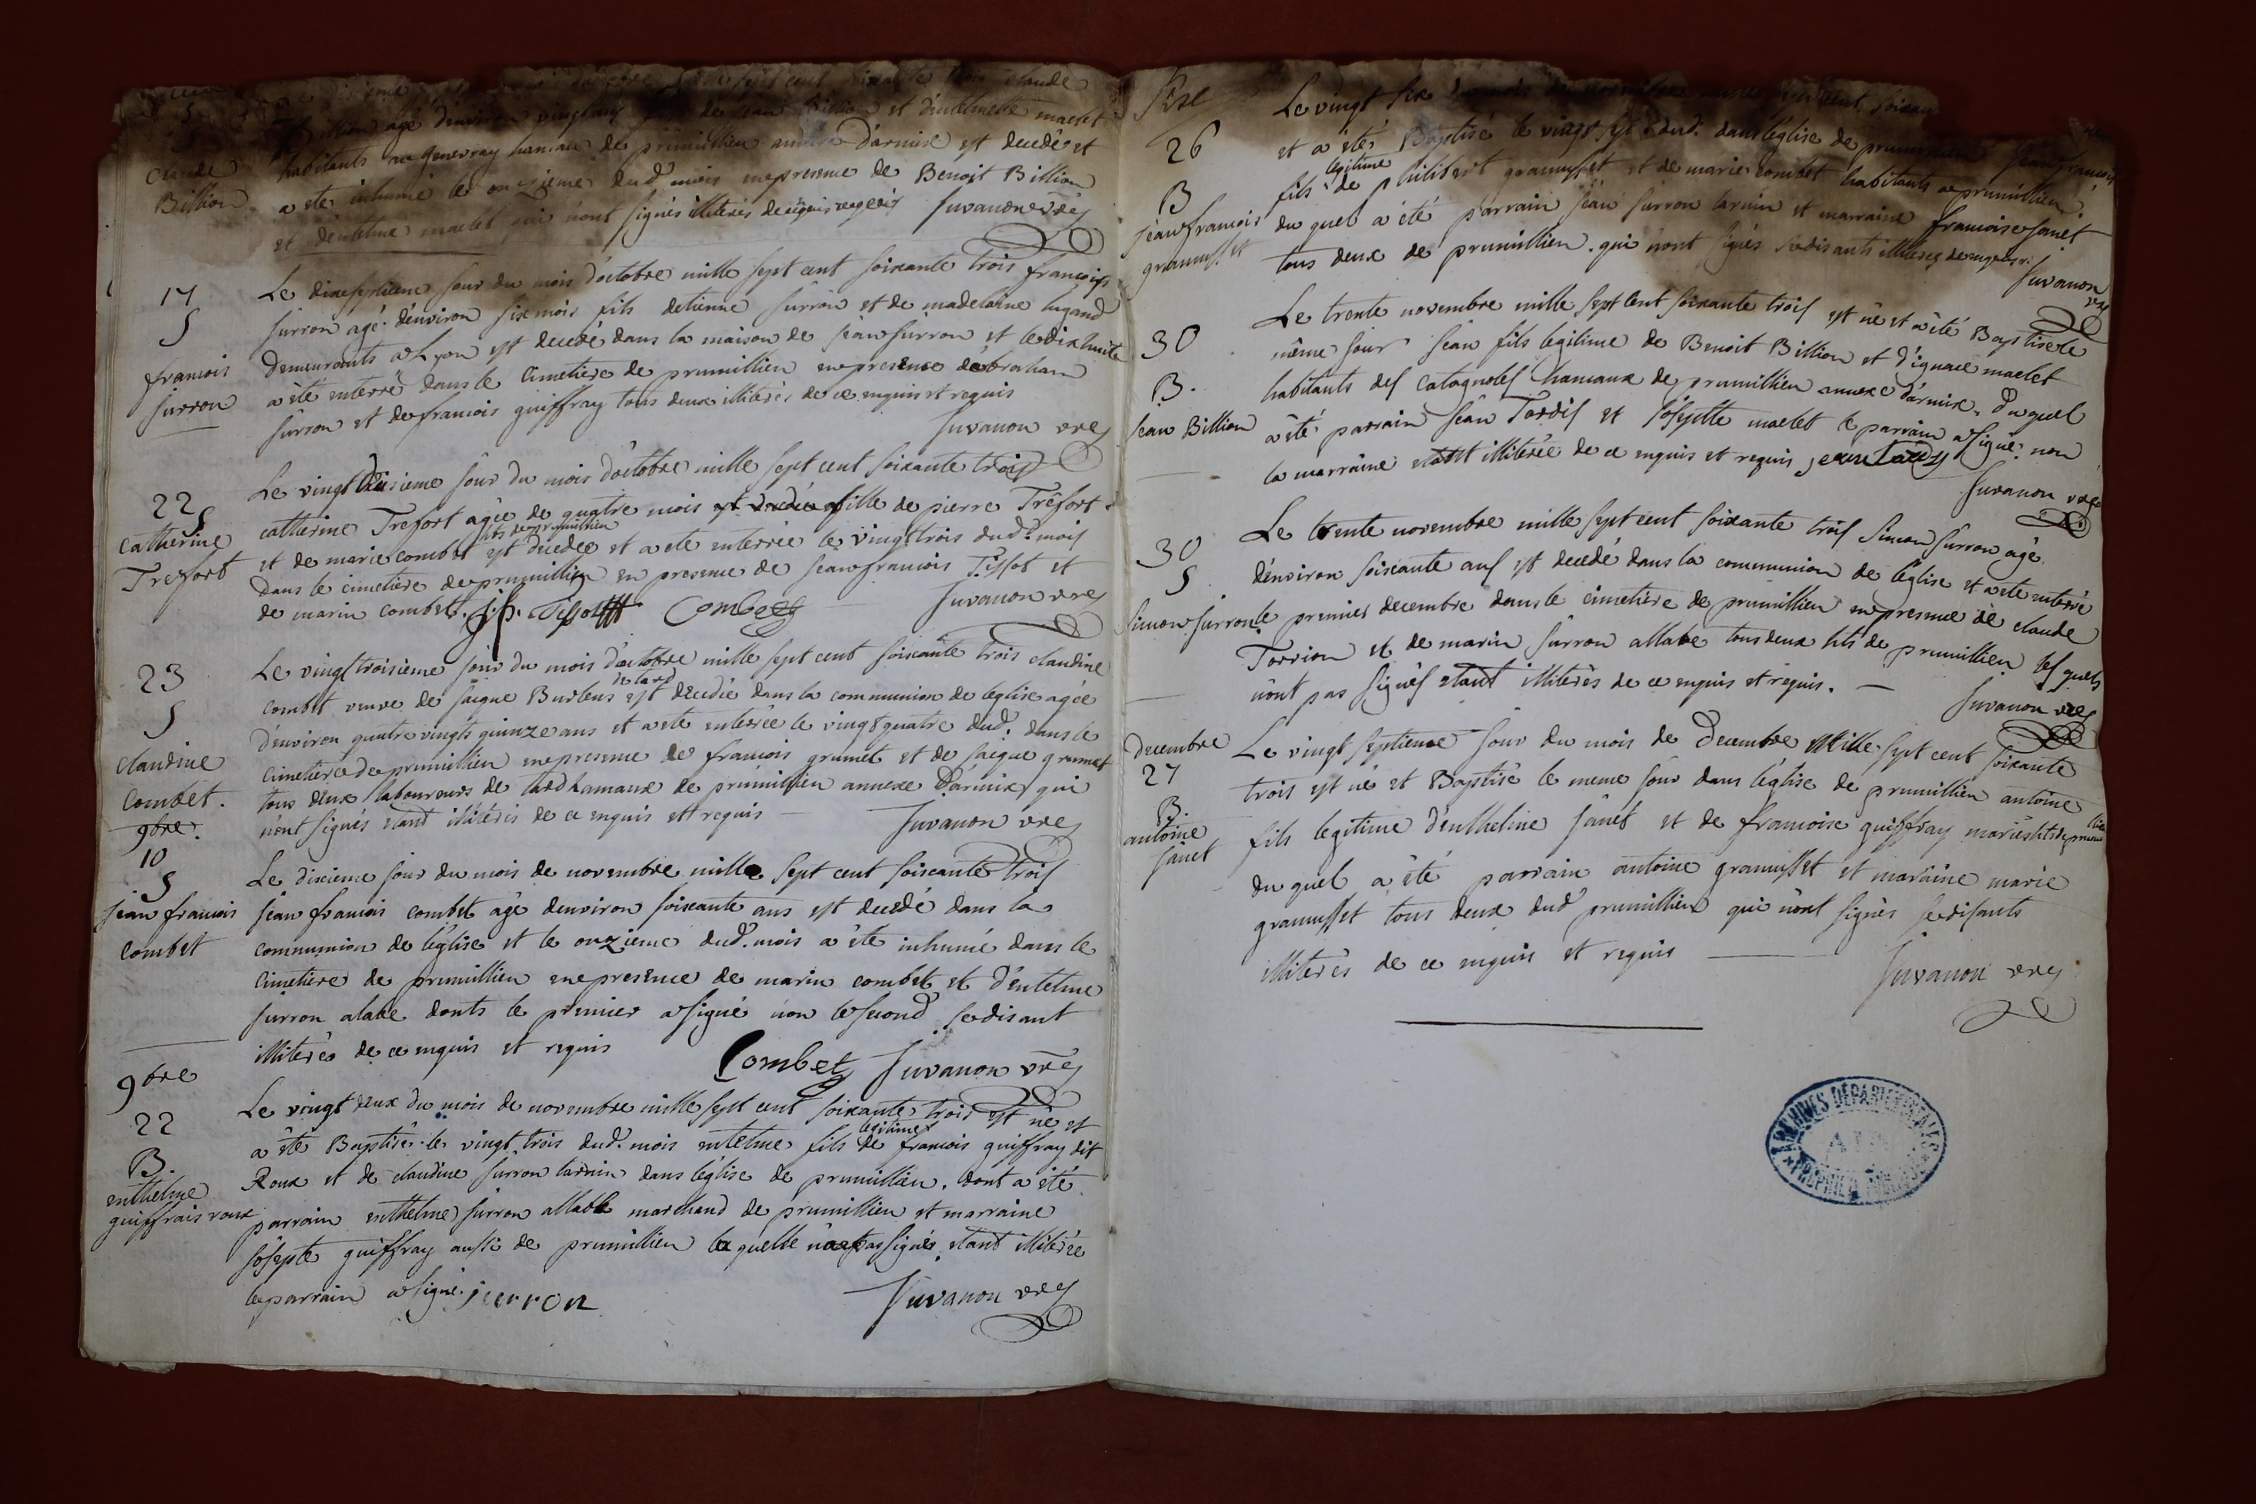 claude
Billion
agé d'environ vingt ans de jean Billion et d'entelmete maclet
habitants au genevray hameau de prumillien annexe d'armix est decedé et
a eté inhumé le onzieme dud. mois en presence de Benoit Billion
et d'entelme maclet qui n'ont signés illiterés de ce enquis requis Juvanon vre
17
S
francois
surron
Le dixseptieme jour du mois d'octobre mille sept cent soixante trois francois
surron agé d'environ six mois fils d'etienne surron et de madelaine lugand
demeurants a Lyon est decedé dans la maison de jean surron et le dix huite
a été enterré dans le cimetiere de prumillien en presence d'abraham
surron et de francois guiffray tous deux illiterés de ce enquis et requis
Juvanon vre
22
S
catherine
Trefort
Le vingt deusieme jour du mois d'octobre mille sept cent soixante trois
catherine Trefort agée de quatre mois fille de pierre Trefort
et de marie combet hts de prumillien est decedée et a eté enterrée le vingt trois dud. mois
dans le cimetiere de prumillien en presence de jean francois Tissot et
de marin combet. j.f. Tissot Combet Juvanon vre
23
S
claudine
combet.
Le vingt troisieme jour du mois d'octobre mille sept cent soixante trois claudine
combet veuve de jaque Burlens de lard est decedée dans la communion de leglise agée
d'environ quatre vingts quinze ans et a eté enterrée le vingt quatre dud. dans le
cimetiere de prumillien en presence de francois grumet et de jaque grumet
tous deux laboureurs de lard hamaux de prumillien annexe d'armix qui
n'ont signés etant illiterés de ce enquis et requis — Juvanon vre
9bre.
10
S
jean francois
combet
Le dixieme jour du mois de novembre mille sept cent soixante trois
jean francois combet agé denviron soixante ans est decedé dans la
communion de l'église et le onzieme dud. mois a été inhumé dans le
cimetiere de prumillien en presence de marin combet et d'entelme
surron alabe donts le premier a signé non le second se disant
illiterés de ce enquis et requis Combet Juvanon vre
9bre
22
B.
enthelme
guiffrais roux
Le vingt deux du mois de novembre mille sept cent soixante trois est né et
a été Baptisés le vingt trois dud. mois entelme fils legitime de francois guiffray dit
Roux et de claudine surron tarnin dans l'église de prumillien. dont a été
parrain enthelme surron allabe marchand de prumillien et marraine
josepte guiffray aussi de prumillien la quelle n'a pas signés etant illiterée
le parrain a signé. surron Juvanon vre
26
B
jean francois
gramusset
Le vingt six
et a étés Baptisé le vingt sept dud. dans l'église de prumillien jean francois
fils legitime de philibert gramusset et de marie combet habitants a prumillien
du quel a été parrain jean surron tarnin et marraine francoise janet
tous deux de prumillien. qui n'ont signés se disants illiterés de enquis r.
Juvanon vre
30
B.
jean Billion
Le trente novembre mille sept cent soixante trois est né et a été Baptisé le
même jour jean fils legitime de Benoit Billion et d'ignace maclet
habitants des catagnoles hamaux de prumillien annexe d'armix. du quel
a été parrain jean Tardif et josepte maclet le parrain a signé. non
la marraine etant illiterée de ce enquis et requis jean tardy
Juvanon vre
30
S
simon surron
Le trente novembre mille sept cent soixante trois simon surron agé
d'environ soixante ans est decedé dans la communion de l'église et a eté enterré
le premier decembre dans le cimetiere de prumillien en presence de claude
Torrion et de marin surron allabe tous deux hts de prumillien les quels
n'ont pas signés etant illiterés de ce enquis et requis. —
Juvanon vre
decembre
27
B.
antoine
janet
Le vingt septieme jour du mois de decembre mille sept cent soixante
trois est né et Baptisé le meme jour dans l'église de prumillien antoine
fils legitime d'enthelme janet et de francoise guiffray mariés hts de prumillien
du quel a été parrain antoine gramusset et maraine marie
gramusset tous deux dud. prumillien qui n'ont signés se disants
illiterés de ce enquis et requis
Juvanon vre
ARCHIVES DÉPARTEMENTALES
AIN
PROPRIÉTÉ PUBLIQUE